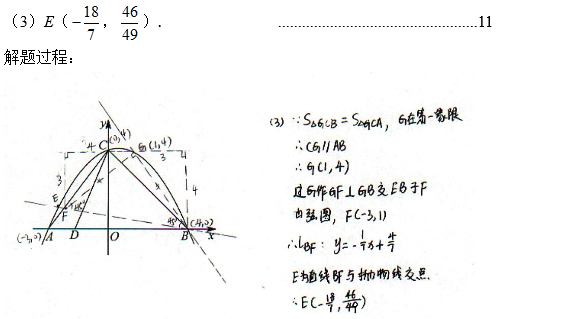 （3）E（-18/7，46/49）． ……………………………………………11
解题过程：
y
C(0,4)
G(1,4)
4
3
3
4
E
F
45°
(-3,0)
A
D
O
B
(4,0)
x
(3) ∵S△GCB=S△GCA, G在第一象限
∴CG∥AB
∴G(1,4)
过G作GF⊥GB交EB于F
由弦图, F(-3,1)
∴lBF: y=-1/7x+4/7
E为直线BF与抛物线交点
∴E(-18/7, 46/49)